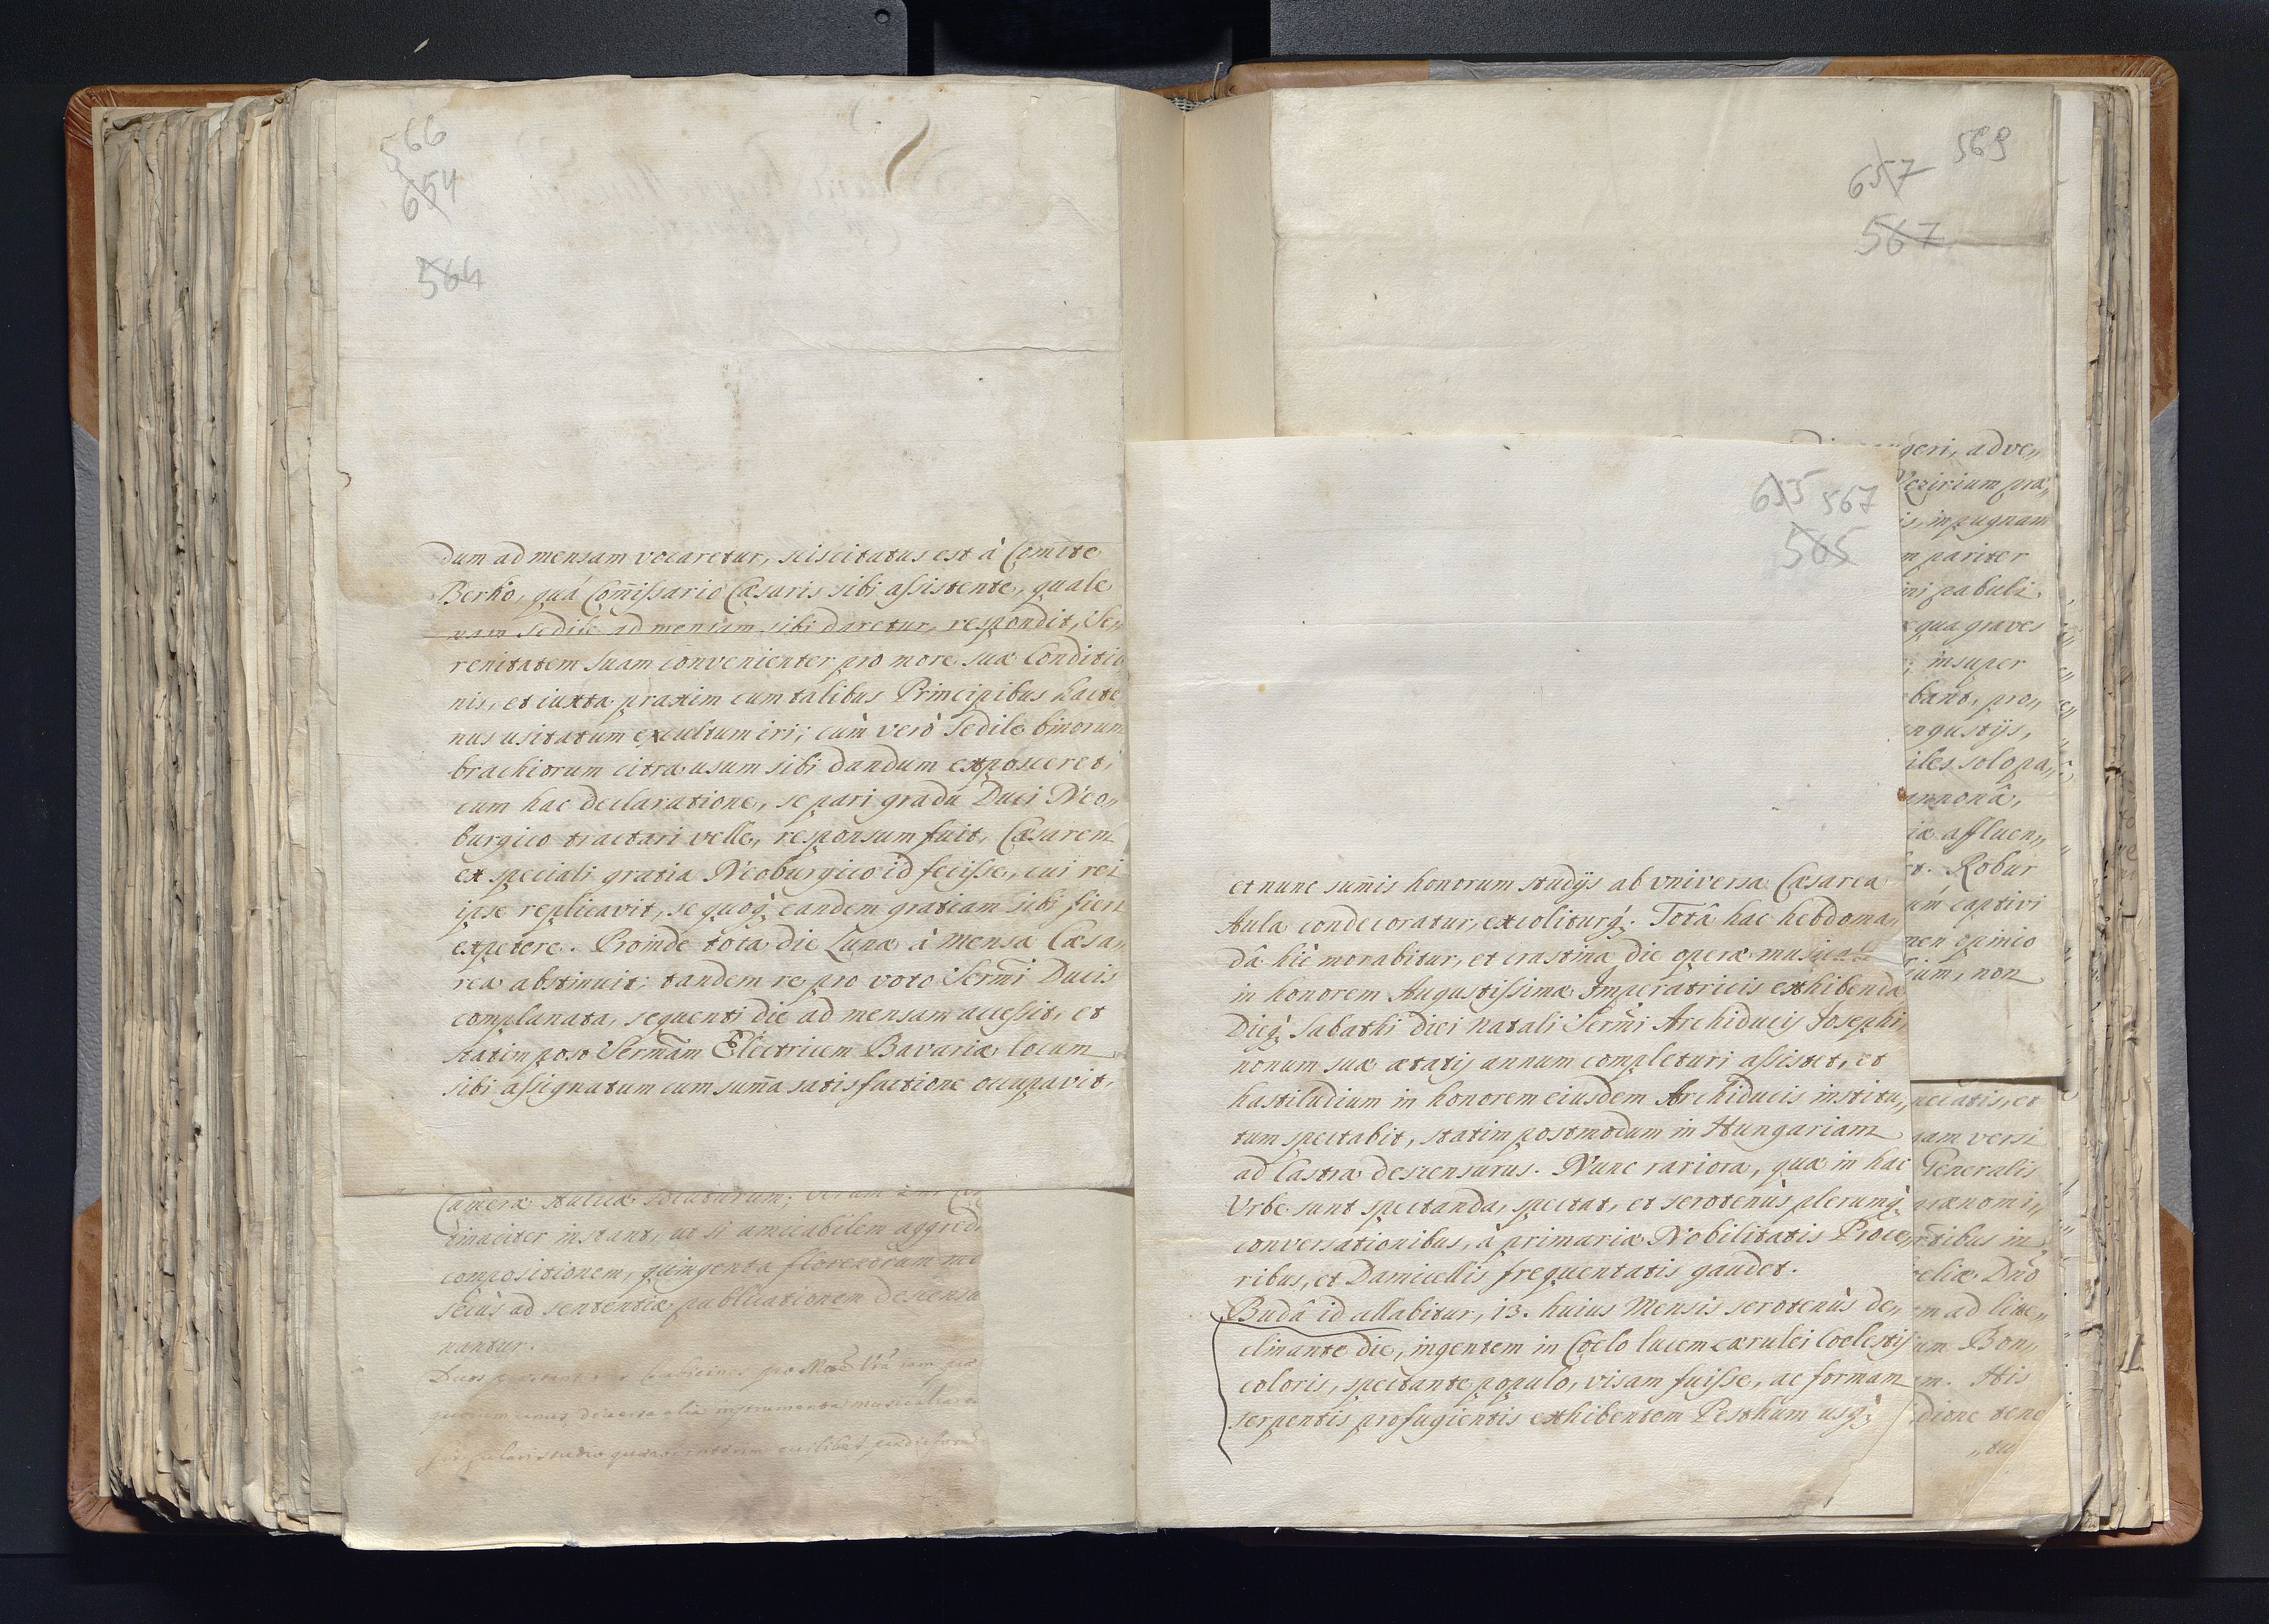 566
654
564
dum ad mensam vocaretur, sciscitatus est à Comite
Berko, quá Com̃issario Cæsaris sibi assistente, quale
nam sedile ad mensam sibi daretur, respondit, Se„
renitatem suam convenienter pro more suæ Conditio
nis, et iuxta praxim cum talibus Principibus hacte
nus usitatum excultum iri; cùm verò Sedile binorum
brachiorum citra usum sibi dandum exposceret,
cum hac declaratione, se pari gradu Duci Neo„
burgico tractari velle, responsum fuit, Cæsarem
ex speciali gratia Neoburgico id fecisse, cui rei
ipse replicavit, se quoq̀ eandem gratiam sibi fieri
expetere. Proinde tota die Lunæ à mensa Cæsa„
rea abstinuit, tandem re pro voto Sermĩ Ducis
complanata, sequenti die ad mensam accessit, et
statim post Sermãm Electricem Bavariæ locum
sibi assignatum cum sum̃a satisfactione occupavit,
tinaciter instant, ut si amicabilem aggredi
compositionem, quingenta florenorum mi
seciùs ad sententiæ publicationem descensu
nantur.
657 569
567
geri, adve„
Vezirium præ„
is, in pugnam
m pariter
ini pabuli
qua graves
; insuper
bant, pro„
angustijs,
iles solo pa„
annonâ,
iæ affluen„
et. Robur
captivi
men opinio
ium, non
655 567
565
et nunc sum̃is honorum studijs ab vniversa Cæsarea
Aula condecoratur, excoliturq́. Totâ hac hebdoma„
dâ hìc morabitur, et crastina die operæ musicali
in honorem Augustissimæ Imperatricis exhibendæ
Dieq́ Sabathi diei natali Sermĩ Archiducis Josephi,
nonum suæ ætatis annum completuri assistet, et
hastiludium in honorem eiusdem Archiducis institu„
tum spectabit, statim postmodum in Hungariam
ad Castra descensurus. Nunc rariora, quæ in hac
Vrbe sunt spectanda, spectat, et serotenùs plerumq́
conversationibus, à primariæ Nobilitatis Proce„
ribus, et Damicellis frequentatis gaudet.
Budâ id allabitur, 13. huius Mensis serotenùs de„
clinante die, ingentem in Coelo lucem cærulei Coelestis
coloris, spectante populo, visam fuisse, ac formam
serpentis profugientis exhibentem Pesthum usq́
nciatis, et
nam versi
Generalis
prænomi„
rtibus in
celiæ Dño
m ad lite„
um Bon„
m. His
dione tene
„tu